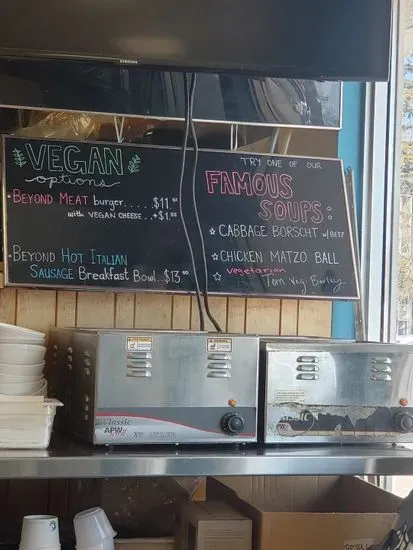 SAMSUNG
VEGAN
options
BEYOND MEAT burger.....$11.
with VEGAN CHEESE..+$1.
BEYOND HOT ITALIAN
SAUSAGE Breakfast Bowl.$13.
TRY ONE OF OUR
FAMOUS
SOUPS:
☆ CABBAGE BORSCHT w/BEEF
☆ CHICKEN MATZO BALL
☆ vegetarian
Tom Veg Barley
Classic
APW